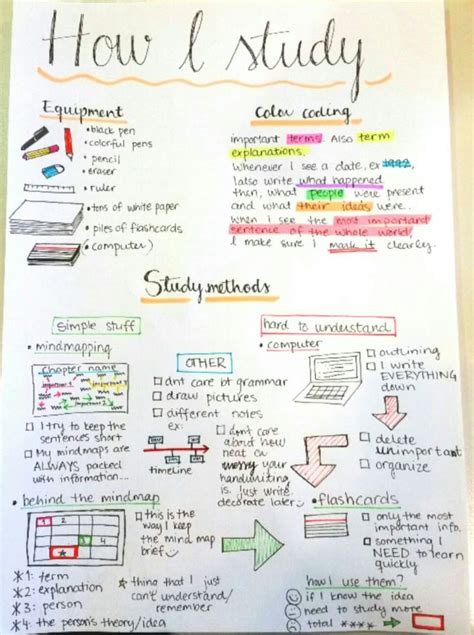 How I study
Equipment
• black pen
• colorful pens
• pencil
• eraser
• ruler
• tons of white paper
• piles of flashcards
• computer)
Color coding
important terms. Also term
explanations.
Whenever I see a date, ex 1992,
I also write what happened
then, what people were present
and what their ideas were.
When I see the most important
sentence of the whole world,
I make sure I mark it clearly.
Study methods
simple stuff
• mindmapping
Chapter name
important 1
important 2
□ I try to keep the
sentences short
□ My mindmaps are
ALWAYS packed
with information...
OTHER
□ dnt care bt grammar
□ draw pictures
□ different notes
ex:
timeline
□ don't care
about how
neat or
messy your
handwriting
is. just write.
decorate later
hard to understand
• computer
□ outlining
□ I write
EVERYTHING
down
□ delete
unimportant
□ organize
• behind the mindmap
1 2
3 4
□ this is the
way I keep
the mind map
brief
* 1: term
* 2: explanation
* 3: person
* 4: the person's theory/idea
☆ thing that I just
can't understand/
remember
• flashcards
□ only the most
important info.
□ something I
NEED to learn
quickly
how I use them?
if I know the idea
need to study more
total ****